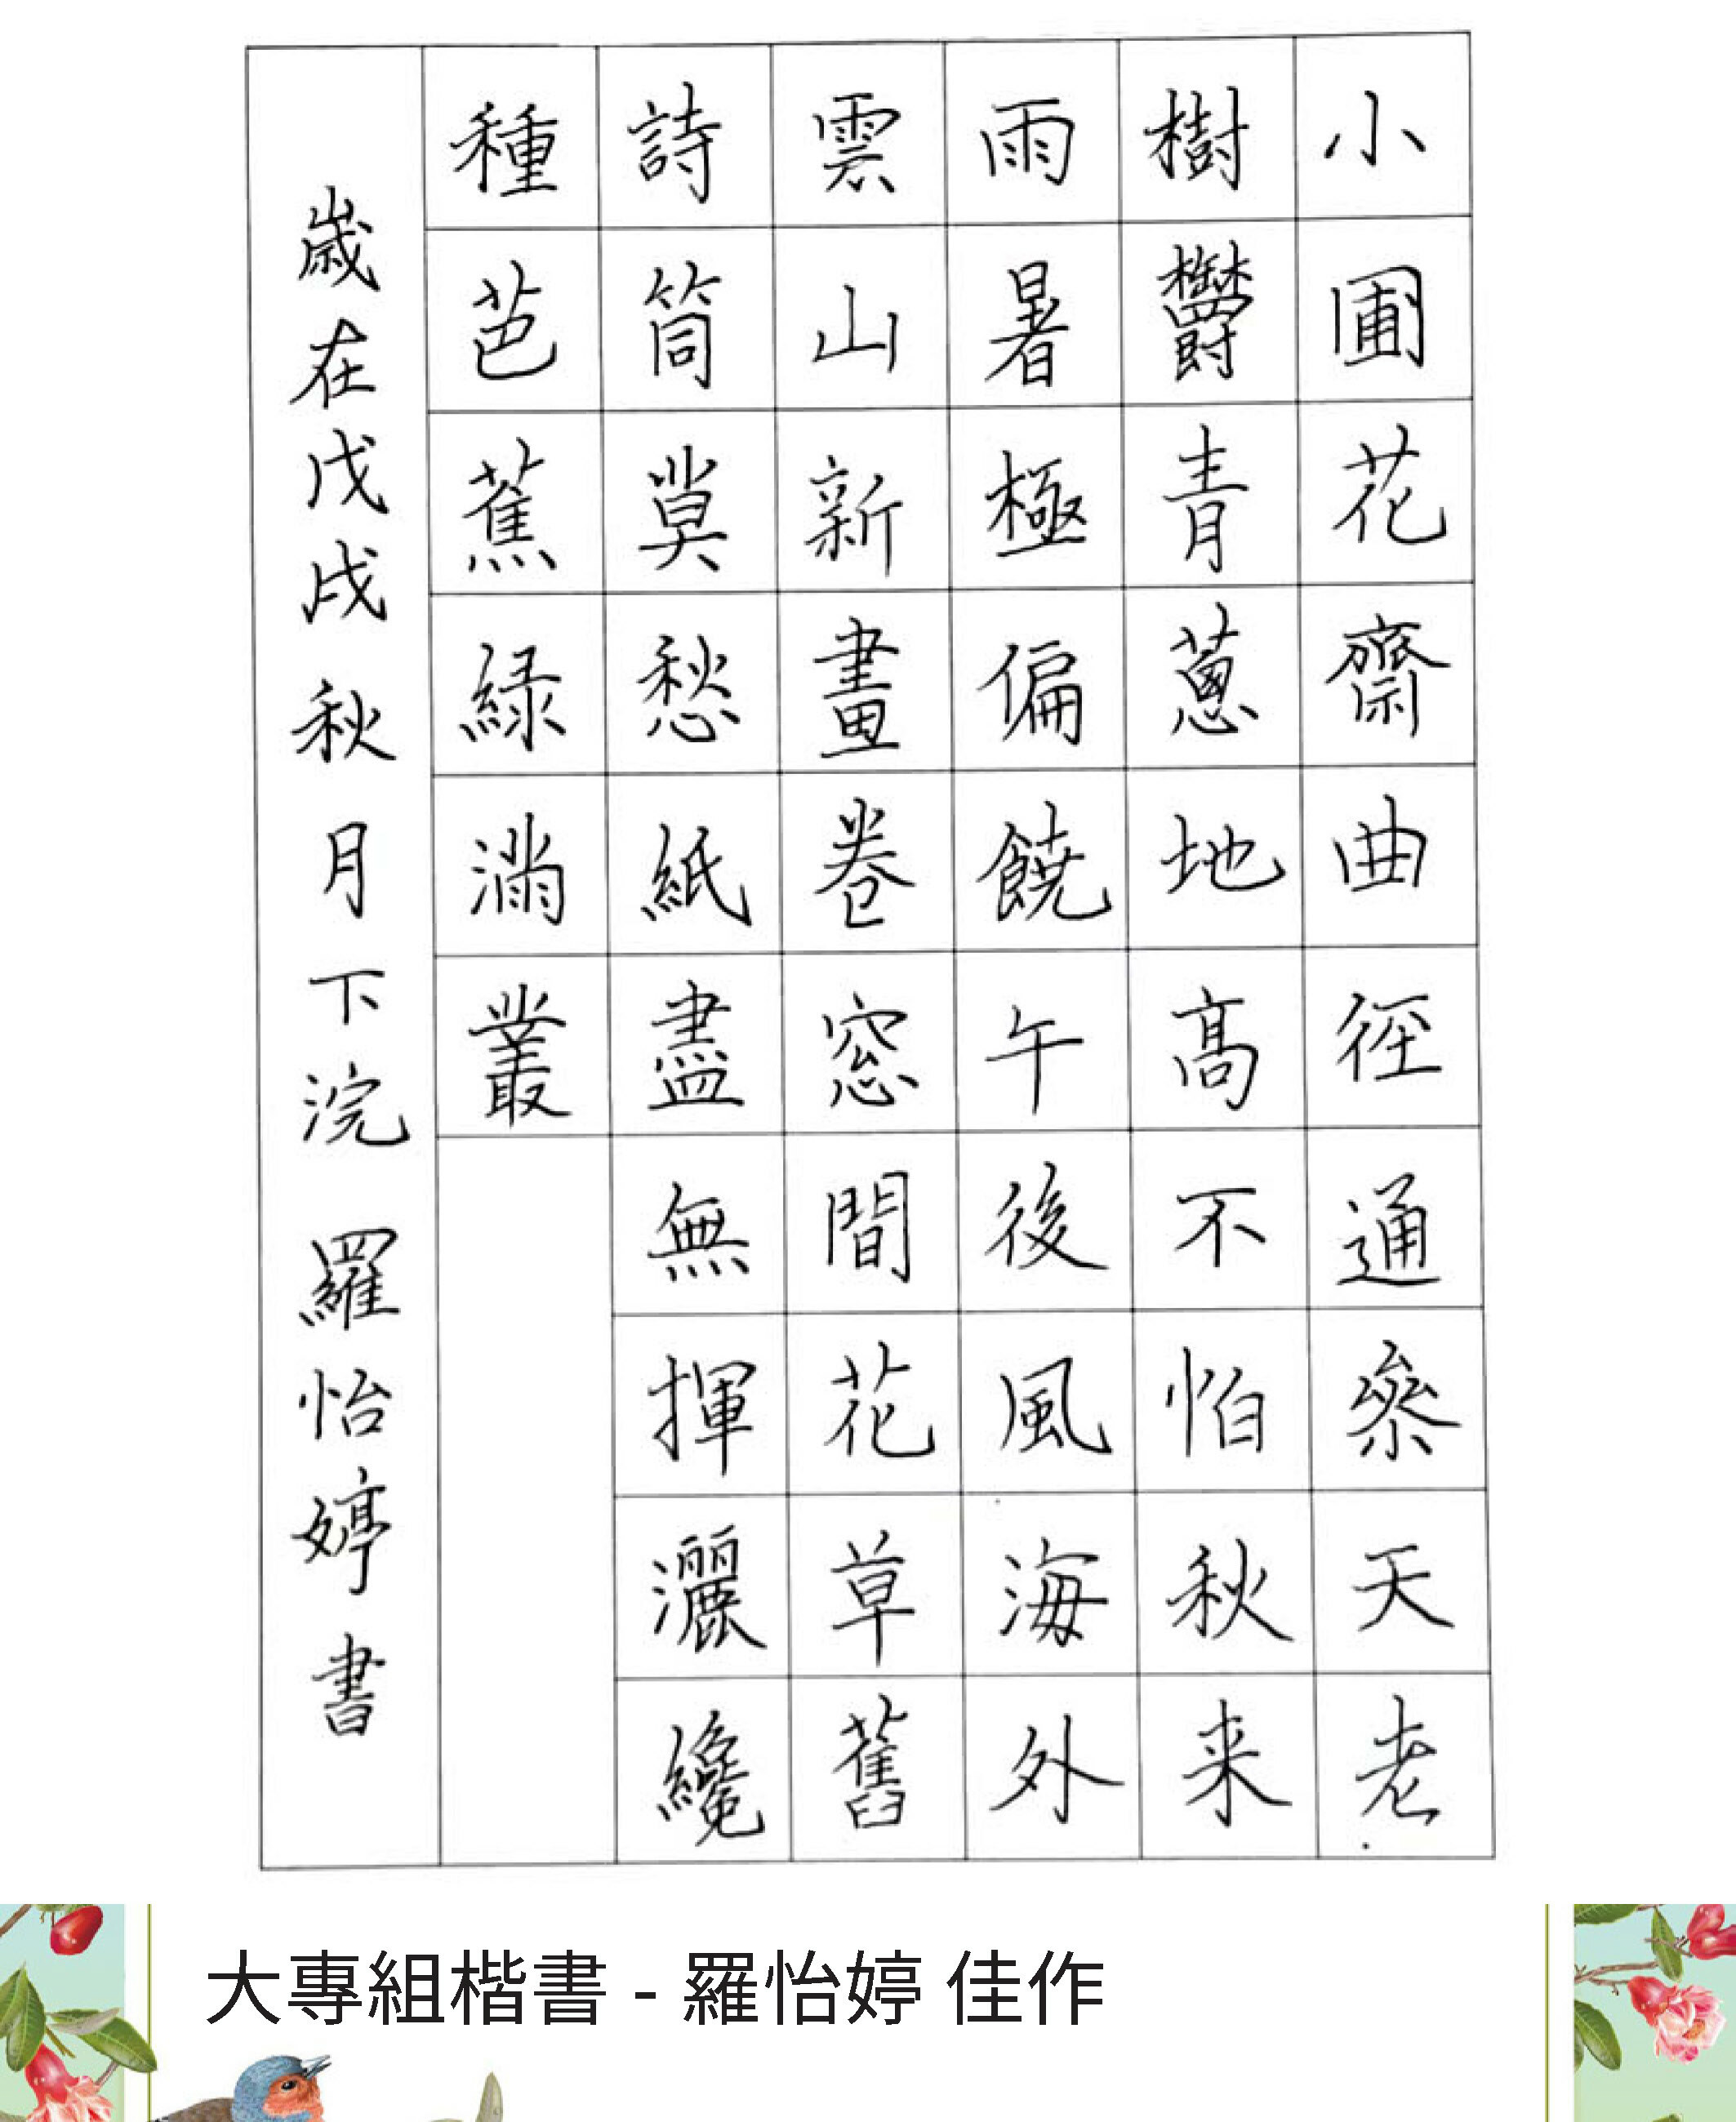 小圃花齋曲徑通參天老
樹鬱青蔥地高不怕秋来
雨暑極偏饒午後風海外
雲山新畫卷窓間花草舊
詩筒莫愁紙盡無揮灑纔
種芭蕉緑滿叢
歲在戊戌秋月下浣 羅怡婷書
大專組楷書 - 羅怡婷 佳作